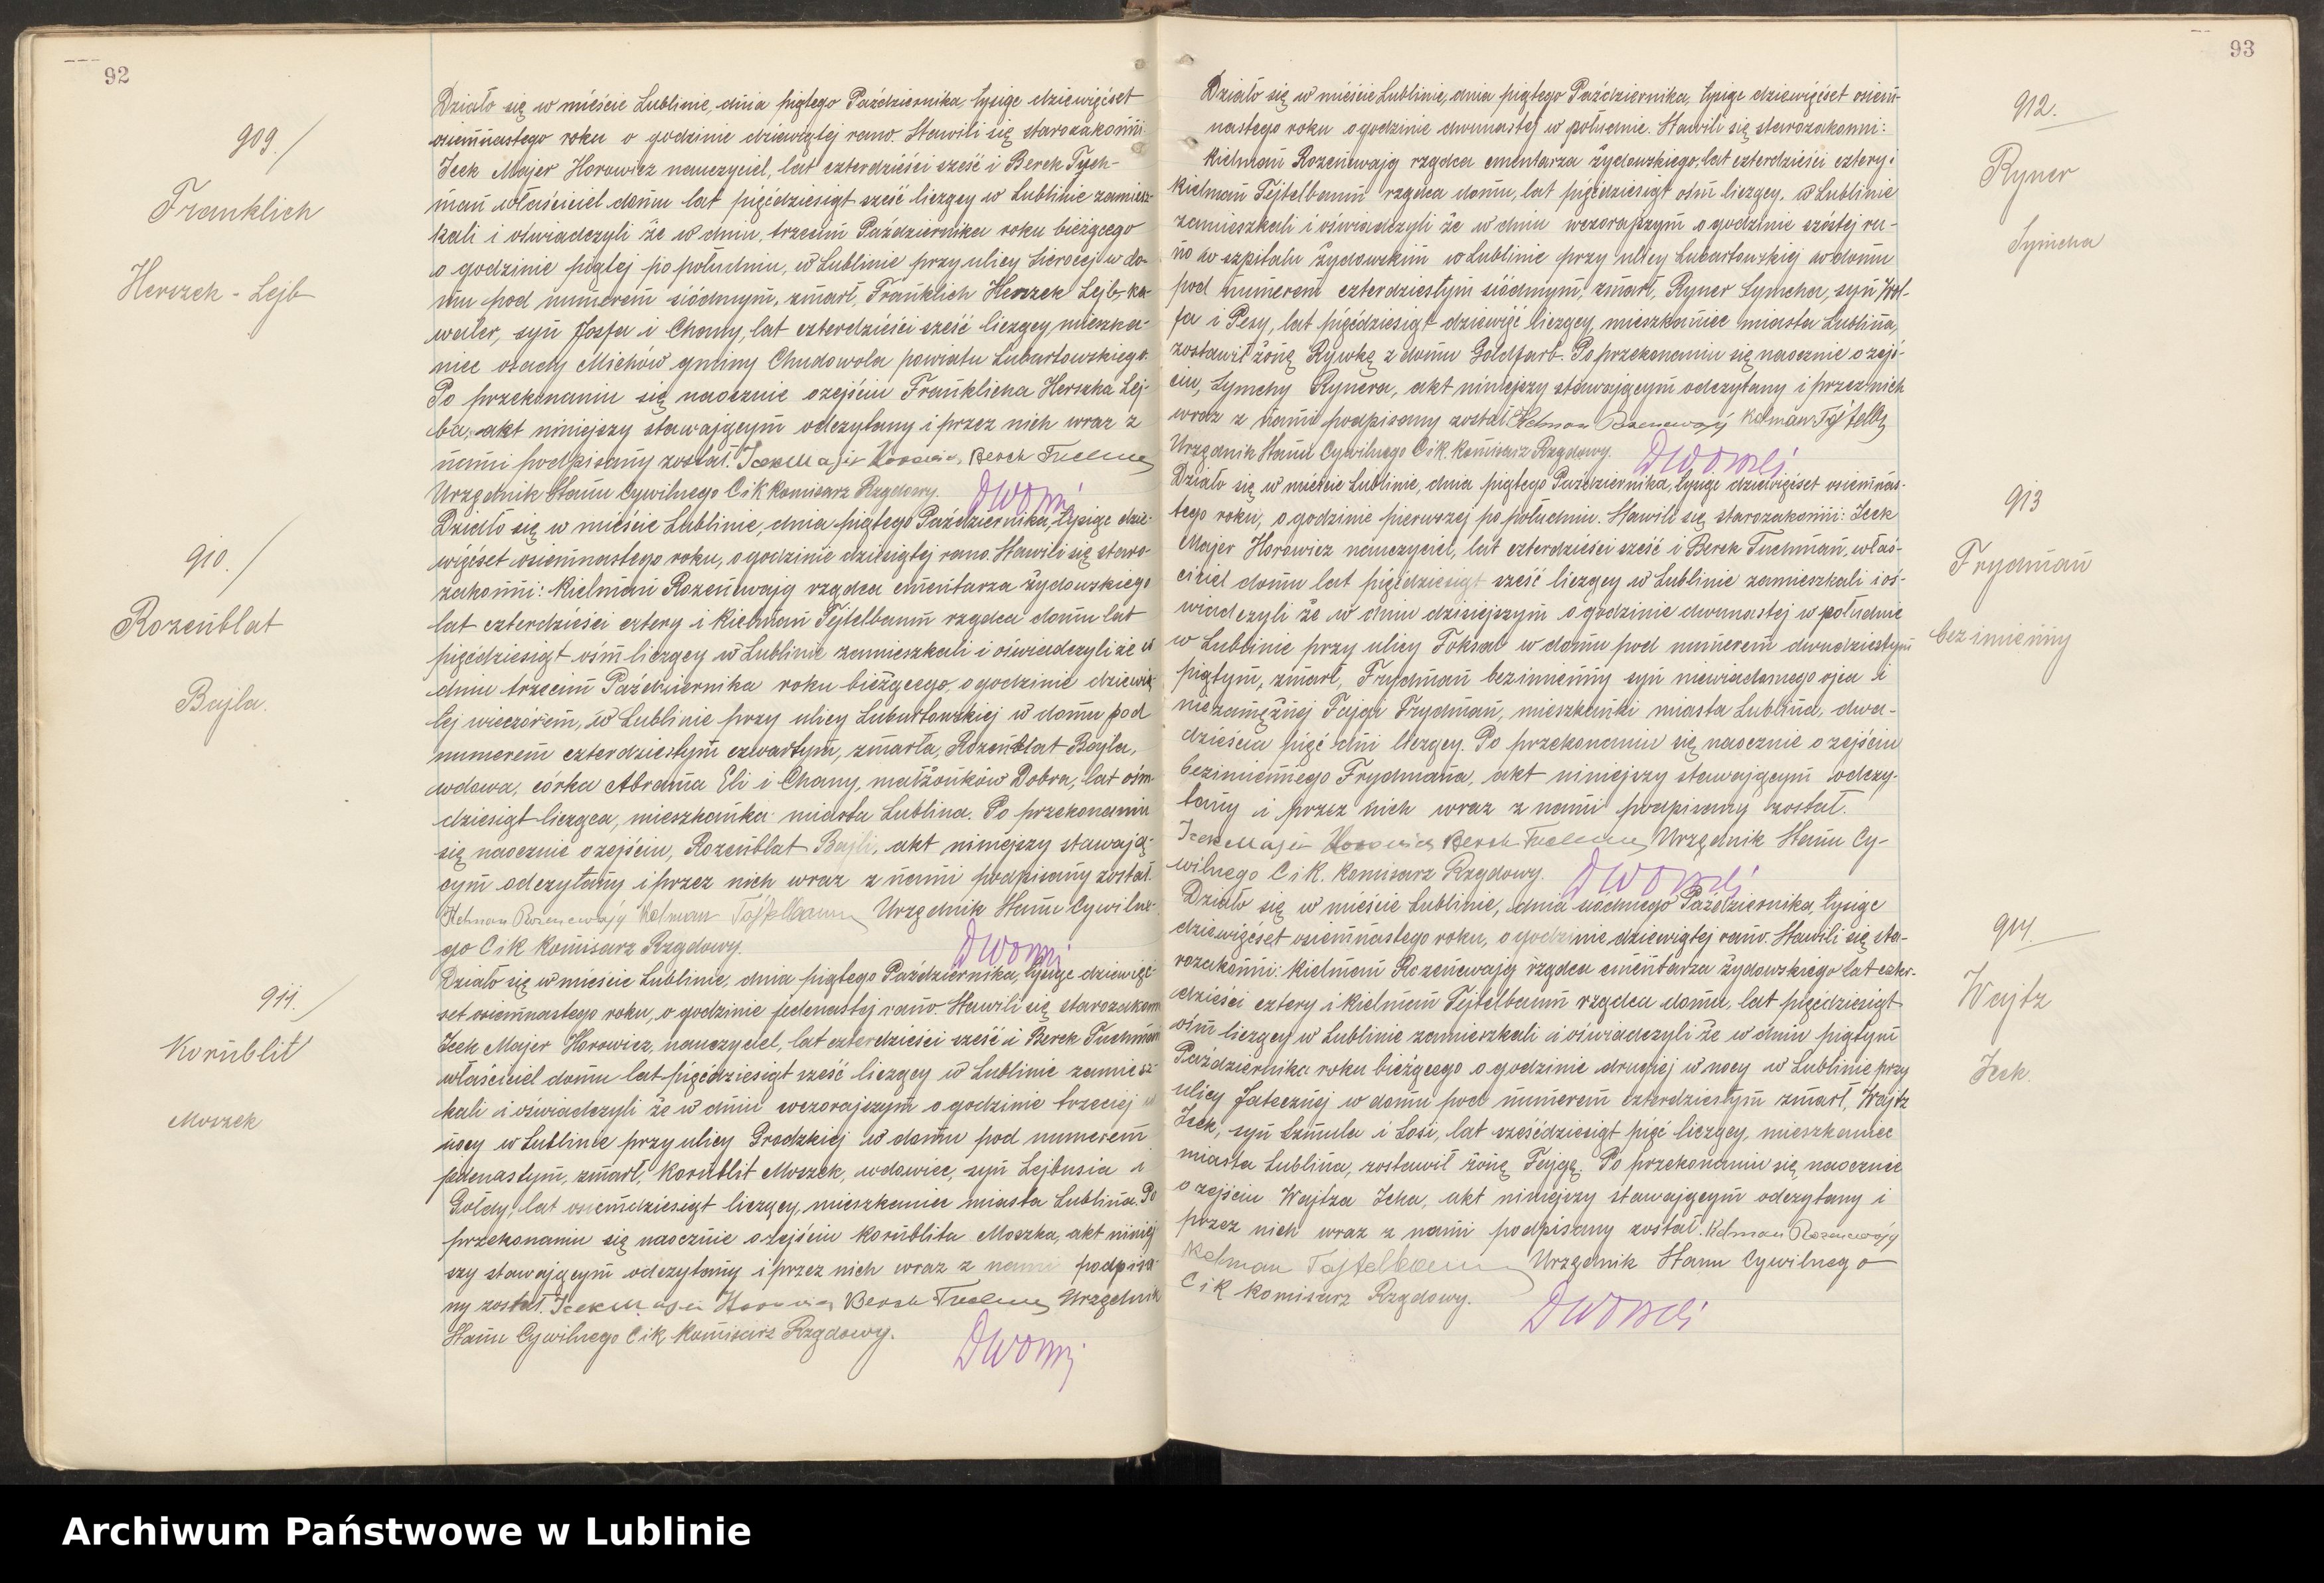 92
909.
Franklich
Herszek - Lejb
Działo się w mieście Lublinie, dnia piątego Października, tysiąc dziewięćset
osiemnastego roku o godzinie dziewiątej rano. Stawili się starozakonni:
Icek Majer Horowicz nauczyciel, lat czterdzieści sześć i Berek Tych-
man właściciel domu lat pięćdziesiąt sześć liczący w Lublinie zamiesz-
kali i oświadczyli że w dniu, trzecim Października roku bieżącego
o godzinie piątej po południu, w Lublinie przy ulicy Sierocej w do-
mu pod numerem siódmym, zmarł, Franklich Herszek Lejb, ka-
waler, syn Josfa i Chany, lat czterdzieści sześć liczący mieszka-
niec osady Michów gminy Chudowola powiatu Lubartowskiego.
Po przekonaniu się naocznie o zejściu Franklicha Herszka Lej-
ba, akt niniejszy stawającym odczytany i przez nich wraz z
nami podpisany został. Icek Majer Horowicz, Berek
Urzędnik Stanu Cywilnego C i K Komisarz Rządowy.
910.
Rozenblat
Bajla.
Działo się w mieście Lublinie, dnia piątego Października, tysiąc dzie-
więćset osiemnastego roku, o godzinie dziesiątej rano. Stawili się staro-
zakonni: Kielman Rozencwajg rządca cmentarza żydowskiego
lat czterdzieści cztery i Kielman Tejtelbaum rządca domu lat
pięćdziesiąt ośm liczący w Lublinie zamieszkali i oświadczyli że w
dniu trzecim Października roku bieżącego, o godzinie dziewią-
tej wieczorem, w Lublinie przy ulicy Lubartowskiej w domu pod
numerem czterdziestym czwartym, zmarła, Rozenblat Bajla,
wdowa, córka Abrama Eli i Chany, małżonków Dobra, lat ośm-
dziesiąt licząca, mieszkanka miasta Lublina. Po przekonaniu
się naocznie o zejściu, Rozenblat Bajli, akt niniejszy stawają-
cym odczytany i przez nich wraz z nami podpisany został.
Kelman Rozencwajg Kelman Tajtelbaum Urzędnik Stanu Cywilne-
go C i K Komisarz Rządowy.
911.
Kornblit
Moszek
Działo się w mieście Lublinie, dnia piątego Października, tysiąc dziewięć-
set osiemnastego roku, o godzinie jedenastej rano. Stawili się starozakonni
Icek Majer Horowicz, nauczyciel, lat czterdzieści sześć i Berek Tuchman
właściciel domu lat pięćdziesiąt sześć liczący w Lublinie zamiesz-
kali i oświadczyli że w dniu wczorajszym o godzinie trzeciej w
nocy w Lublinie przy ulicy Grodzkiej w domu pod numerem
jedenastym, zmarł, Kornblit Moszek, wdowiec, syn Lejbusia i
Gołdy, lat osiemdziesiąt liczący, mieszkaniec miasta Lublina. Po
przekonaniu się naocznie o zejściu Kornblita Moszka, akt niniej-
szy stawającym odczytany i przez nich wraz z nami podpisa-
ny został. Icek Majer Horowicz Berek Urzędnik
Stanu Cywilnego C i K Komisarz Rządowy.
93
912.
Ryner
Symcha
Działo się w mieście Lublinie, dnia piątego Października, tysiąc dziewięćset osiem-
nastego roku o godzinie dwunastej w południe. Stawili się starozakonni:
Kielman Rozencwajg rządca cmentarza żydowskiego, lat czterdzieści cztery i
Kielman Tejtelbaum rządca domu, lat pięćdziesiąt ośm liczący, w Lublinie
zamieszkali i oświadczyli że w dniu wczorajszym o godzinie szóstej ra-
no w szpitalu żydowskim w Lublinie przy ulicy Lubartowskiej w domu
pod numerem czterdziestym siódmym, zmarł, Ryner Symcha, syn Wol-
fa i Pesy, lat pięćdziesiąt dziewięć liczący, mieszkaniec miasta Lublina,
zostawił żonę Rywkę z domu Goldfarb. Po przekonaniu się naocznie o zejś-
ciu, Symchy Rynera, akt niniejszy stawającym odczytany i przez nich
wraz z nami podpisany został. Kelman Rozencwajg Kelman
Urzędnik Stanu Cywilnego C i K. Komisarz Rządowy.
913
Frydman
bezimienny
Działo się w mieście Lublinie, dnia piątego Października, tysiąc dziewięćset osiemnas-
tego roku, o godzinie pierwszej po południu. Stawili się starozakonni: Icek
Majer Horowicz nauczyciel, lat czterdzieści sześć i Berek Tuchman, właś-
ciciel domu lat pięćdziesiąt sześć liczący w Lublinie zamieszkali i oś-
wiadczyli że w dniu dzisiejszym o godzinie dwunastej w południe
w Lublinie przy ulicy Foksal w domu pod numerem dwudziestym
piątym, zmarł, Frydman bezimienny syn niewiadomego ojca i
niezamężnej Fajgi Frydman, mieszkanki miasta Lublina, dwa-
dzieścia pięć dni liczący. Po przekonaniu się naocznie o zejściu
bezimiennego Frydmana, akt niniejszy stawającym odczy-
tany i przez nich wraz z nami podpisany został.
Icek Majer Horowicz Berek Urzędnik Stanu Cy-
wilnego C i K. Komisarz Rządowy.
914.
Wajtz
Icek.
Działo się w mieście Lublinie, dnia siódmego Października, tysiąc
dziewięćset osiemnastego roku, o godzinie dziewiątej rano. Stawili się sta-
rozakonni: Kielman Rozencwajg rządca cmentarza żydowskiego lat czter-
dzieści cztery i Kielman Tejtelbaum rządca domu, lat pięćdziesiąt
ośm liczący w Lublinie zamieszkali i oświadczyli że w dniu piątym
Października roku bieżącego o godzinie drugiej w nocy w Lublinie przy
ulicy Jatecznej w domu pod numerem czterdziestym zmarł, Wajtz
Icek, syn Szmula i Łosi, lat sześćdziesiąt pięć liczący, mieszkaniec
miasta Lublina, zostawił żonę Fajgę. Po przekonaniu się naocznie
o zejściu Wajtza Icka, akt niniejszy stawającym odczytany i
przez nich wraz z nami podpisany został. Kelman Rozencwajg
Kelman Tajtelbaum Urzędnik Stanu Cywilnego
C i K Komisarz Rządowy.
Archiwum Państwowe w Lublinie